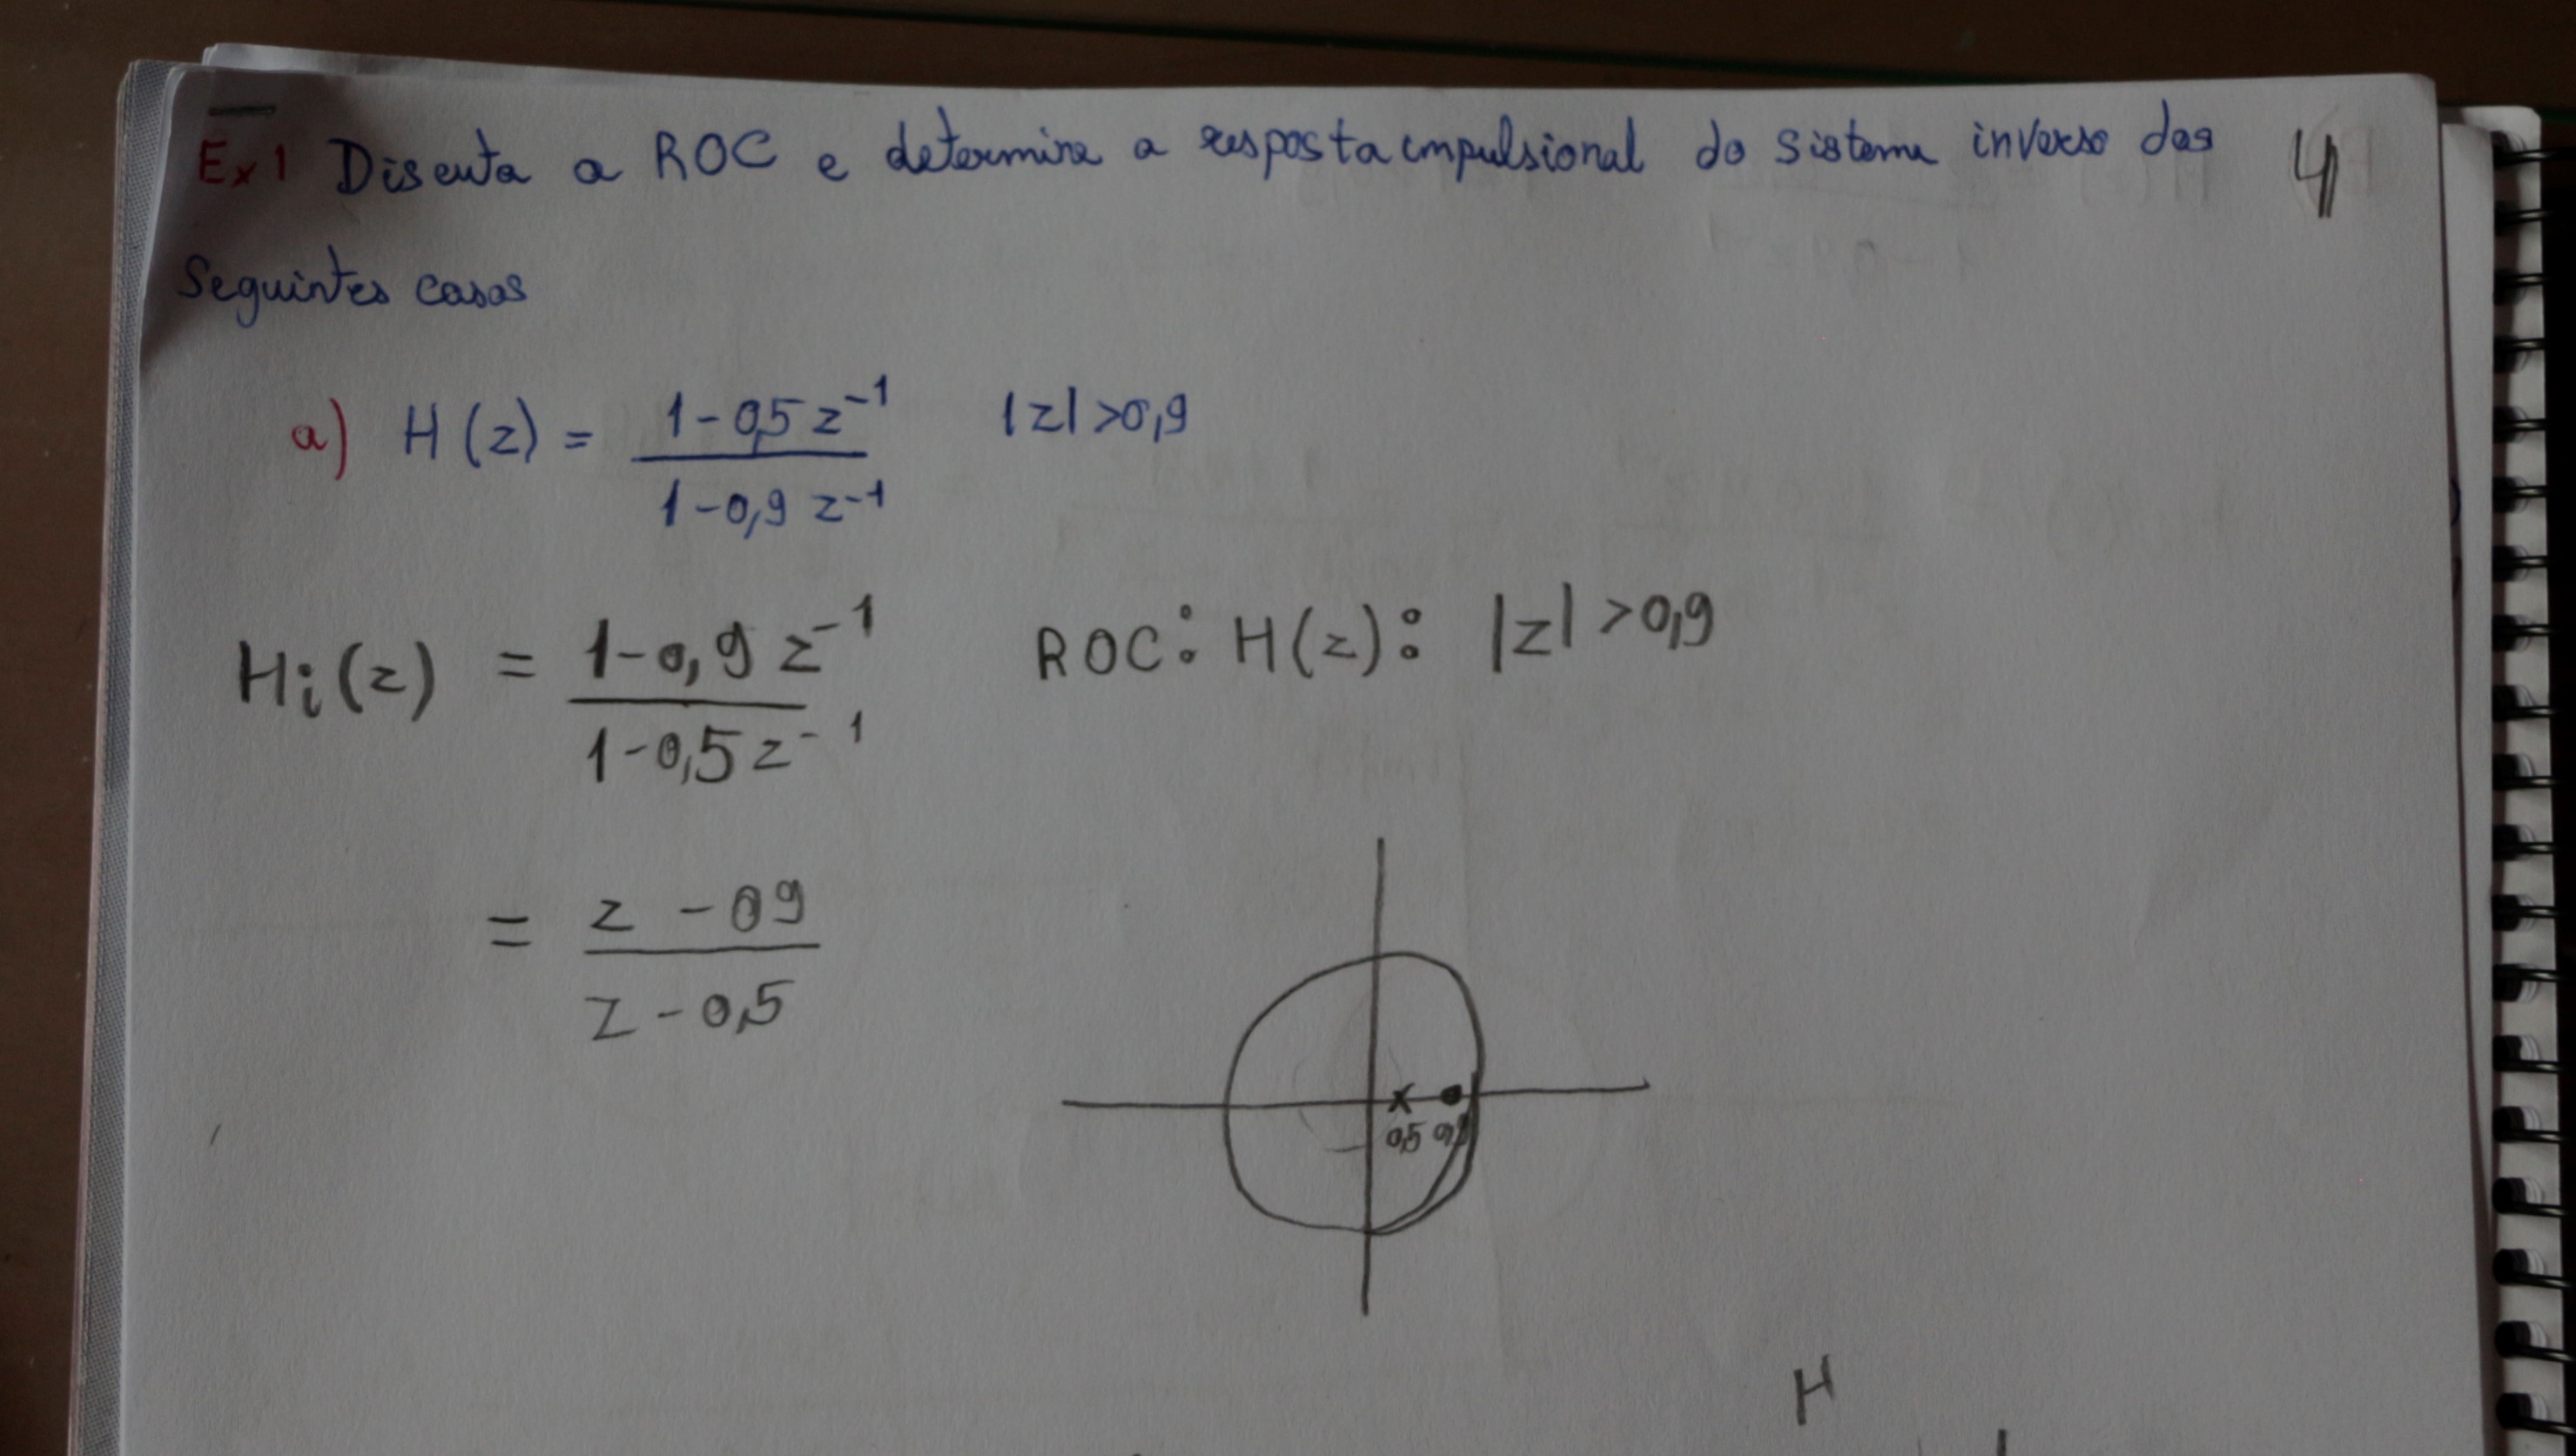 Ex 1 Discuta a ROC e determine a resposta impulsional do sistema inverso dos 4
Seguintes casos
a) H(z) = 1-0,5z⁻¹ / 1-0,9z⁻¹ |z|>0,9
Hi(z) = 1-0,9z⁻¹ / 1-0,5z⁻¹ ROC: H(z): |z|>0,9
= z-09 / z-0,5
0,5 0,9
H